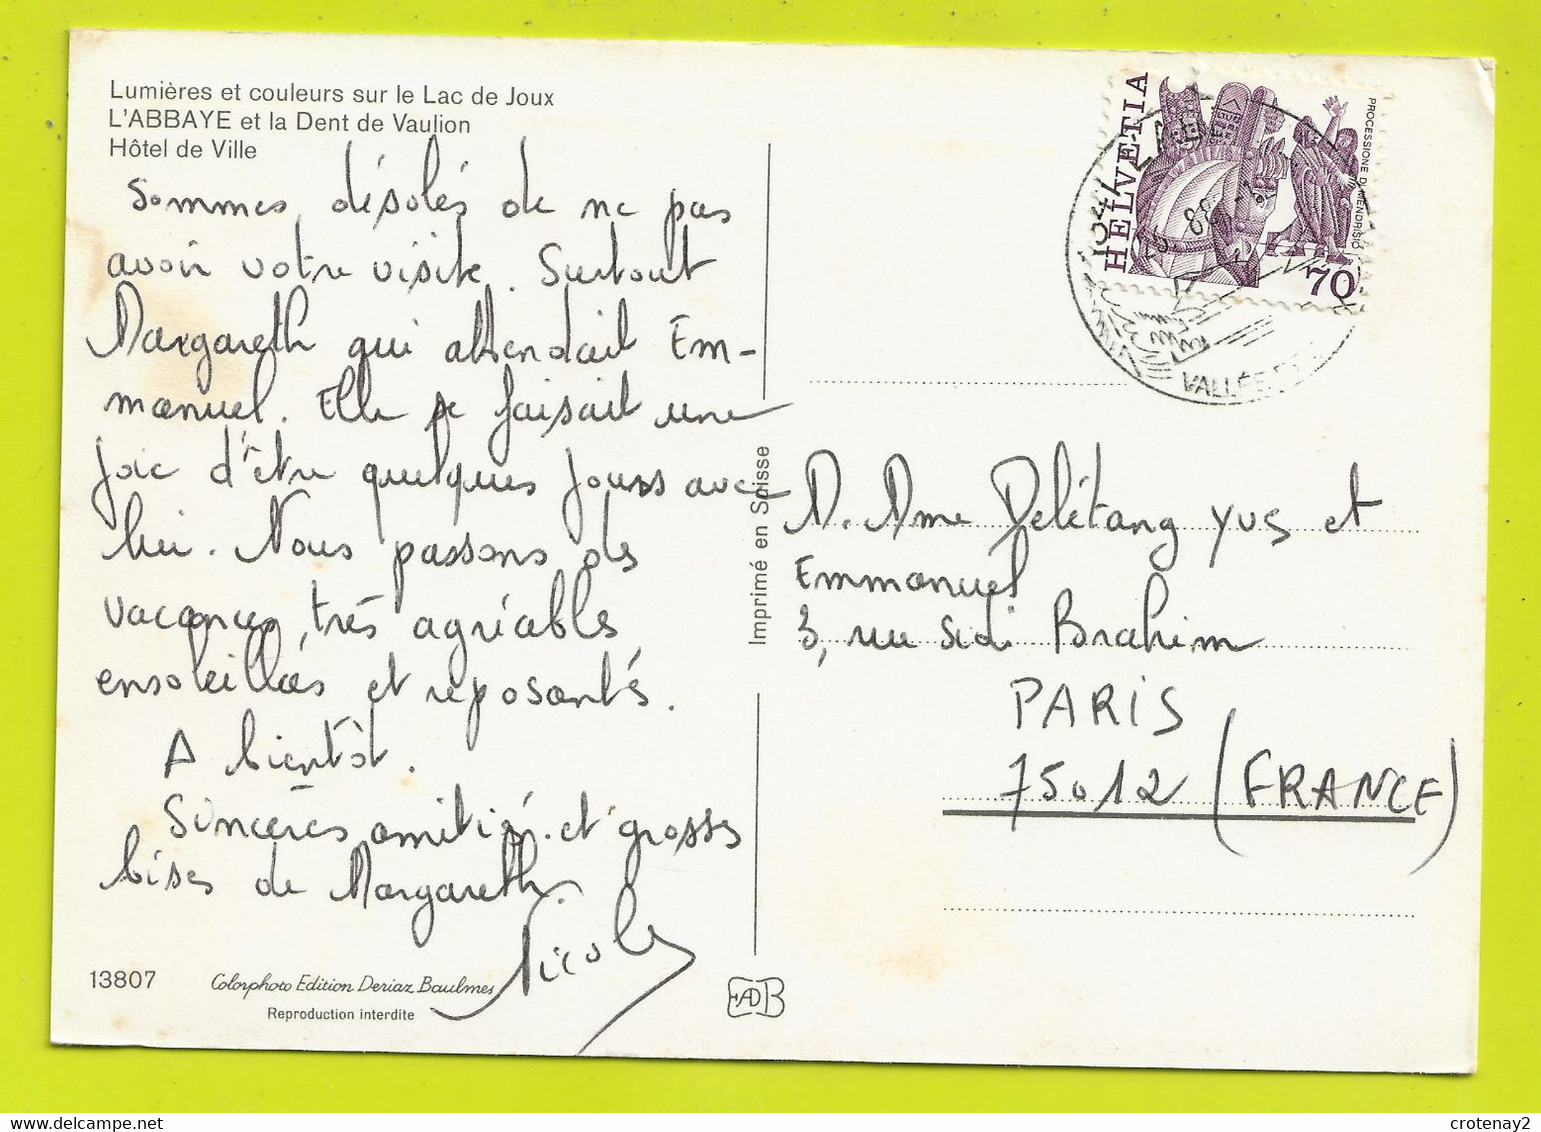 Lumières et couleurs sur le Lac de Joux
L'ABBAYE et la Dent de Vaulion
Hôtel de Ville
Sommes désolés de ne pas
avoir votre visite. Surtout
Margareth qui attendait Em-
manuel. Elle se faisait une
joie d'être quelques jours avec
lui. Nous passons des
vacances, très agréables
ensoleillées et reposantes.
A bientôt.
Sincères amitiés et grosses
bises de Margareth.
Nicole
13807
Colorphoto Edition Deriaz Baulmes
Reproduction interdite
Imprimé en Suisse
EADB
HELVETIA
PROCESSIONE DI MENDRISIO
70
1341 L'ABBAYE
VALLÉE
M. Mme Delétang Yves et
Emmanuel
3, rue Sidi Brahim
PARIS
75012 (FRANCE)
crotenay2